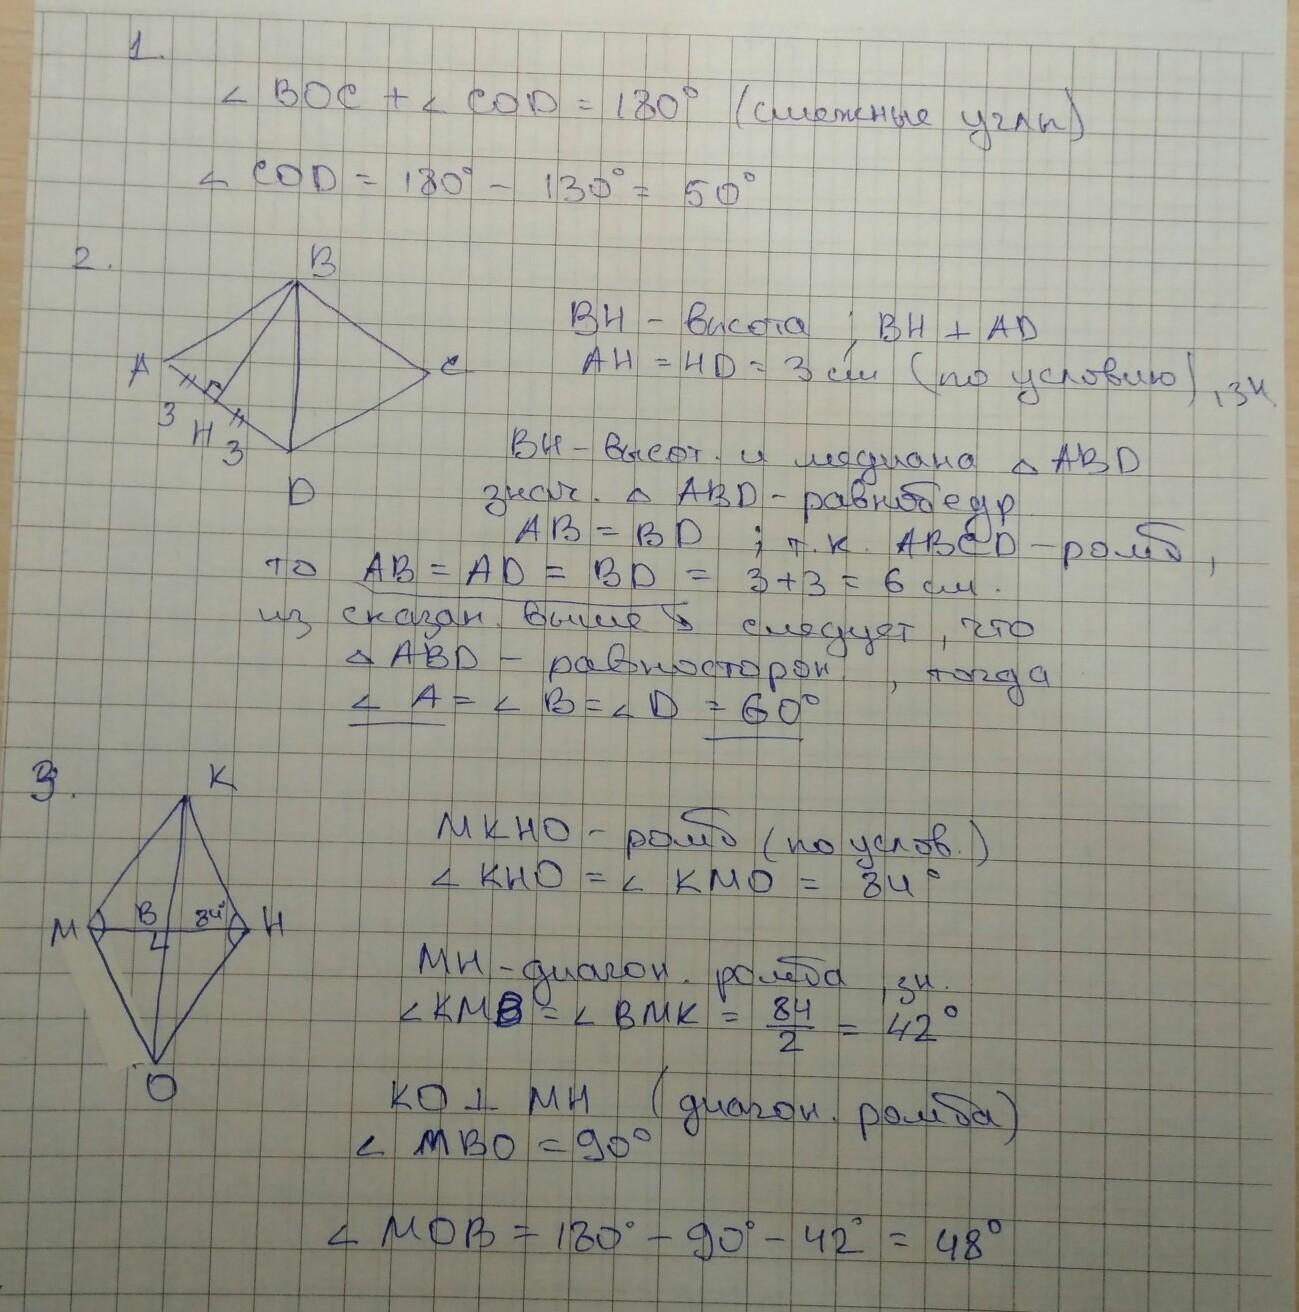 1.
∠ BOC + ∠ COD = 180° (смежные углы)
∠ COD = 180° - 130° = 50°
2.
B
A
C
3
H
3
D
BH - высота ; BH ⊥ AD
AH = HD = 3 см (по условию), зн.
BH - высот. и медиана △ ABD
знач. △ ABD - равнобедр
AB = BD ; т.к. ABCD - ромб,
то AB = AD = BD = 3+3 = 6 см.
из сказан. выше следует, что
△ ABD - равносторон, тогда
∠ A = ∠ B = ∠ D = 60°
3.
K
M
B
84°
H
O
MKHO - ромб (по услов.)
∠ KHO = ∠ KMO = 84°
MH - диагон. ромба, зн.
∠KMB = ∠ BMK = 84/2 = 42°
KO ⊥ MH (диагон. ромба)
∠ MBO = 90°
∠ MOB = 180° - 90° - 42° = 48°